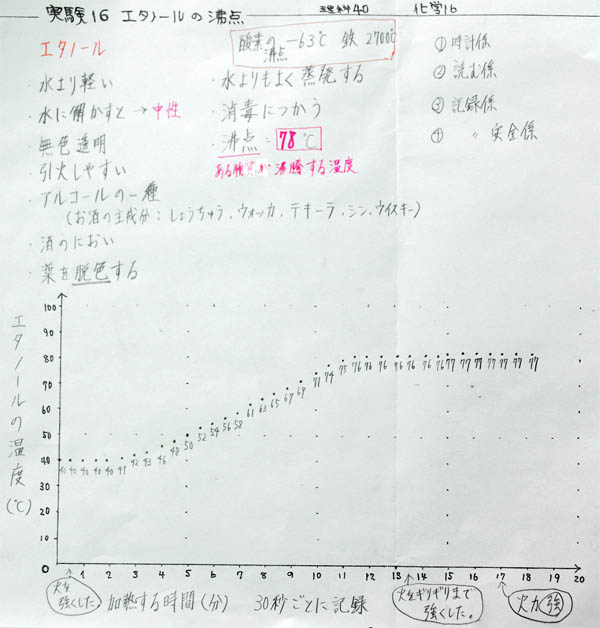 実験16 エタノールの沸点 理科40 化学16
エタノール
酸素の沸点 -63℃ 鉄 2700℃
・水より軽い
・水に解かすと→中性
・無色透明
・引火しやすい
・アルコールの一種
(お酒の主成分:しょうちゅう,ウォッカ,テキーラ,ジン,ウイスキー)
・酒のにおい
・葉を脱色する
・水よりもよく蒸発する
・消毒につかう
・沸点=78℃
ある物質が沸騰する温度
① 時計係
② 読む係
③ 記録係
④ 〃 安全係
エタノールの温度(℃)
100
90
80
70
60
50
40
30
20
10
0
40 40 40 40 41 42 43 45 48 50 52 54 56 58 61 63 65 67 69 71 74 75 76 76 76 76 76 76 77 77 76 77 77 77 77
1 2 3 4 5 6 7 8 9 10 11 12 13 14 15 16 17 18 19 20
火を強くした
加熱する時間(分) 30秒ごとに記録
火をギリギリまで強くした。
火力強